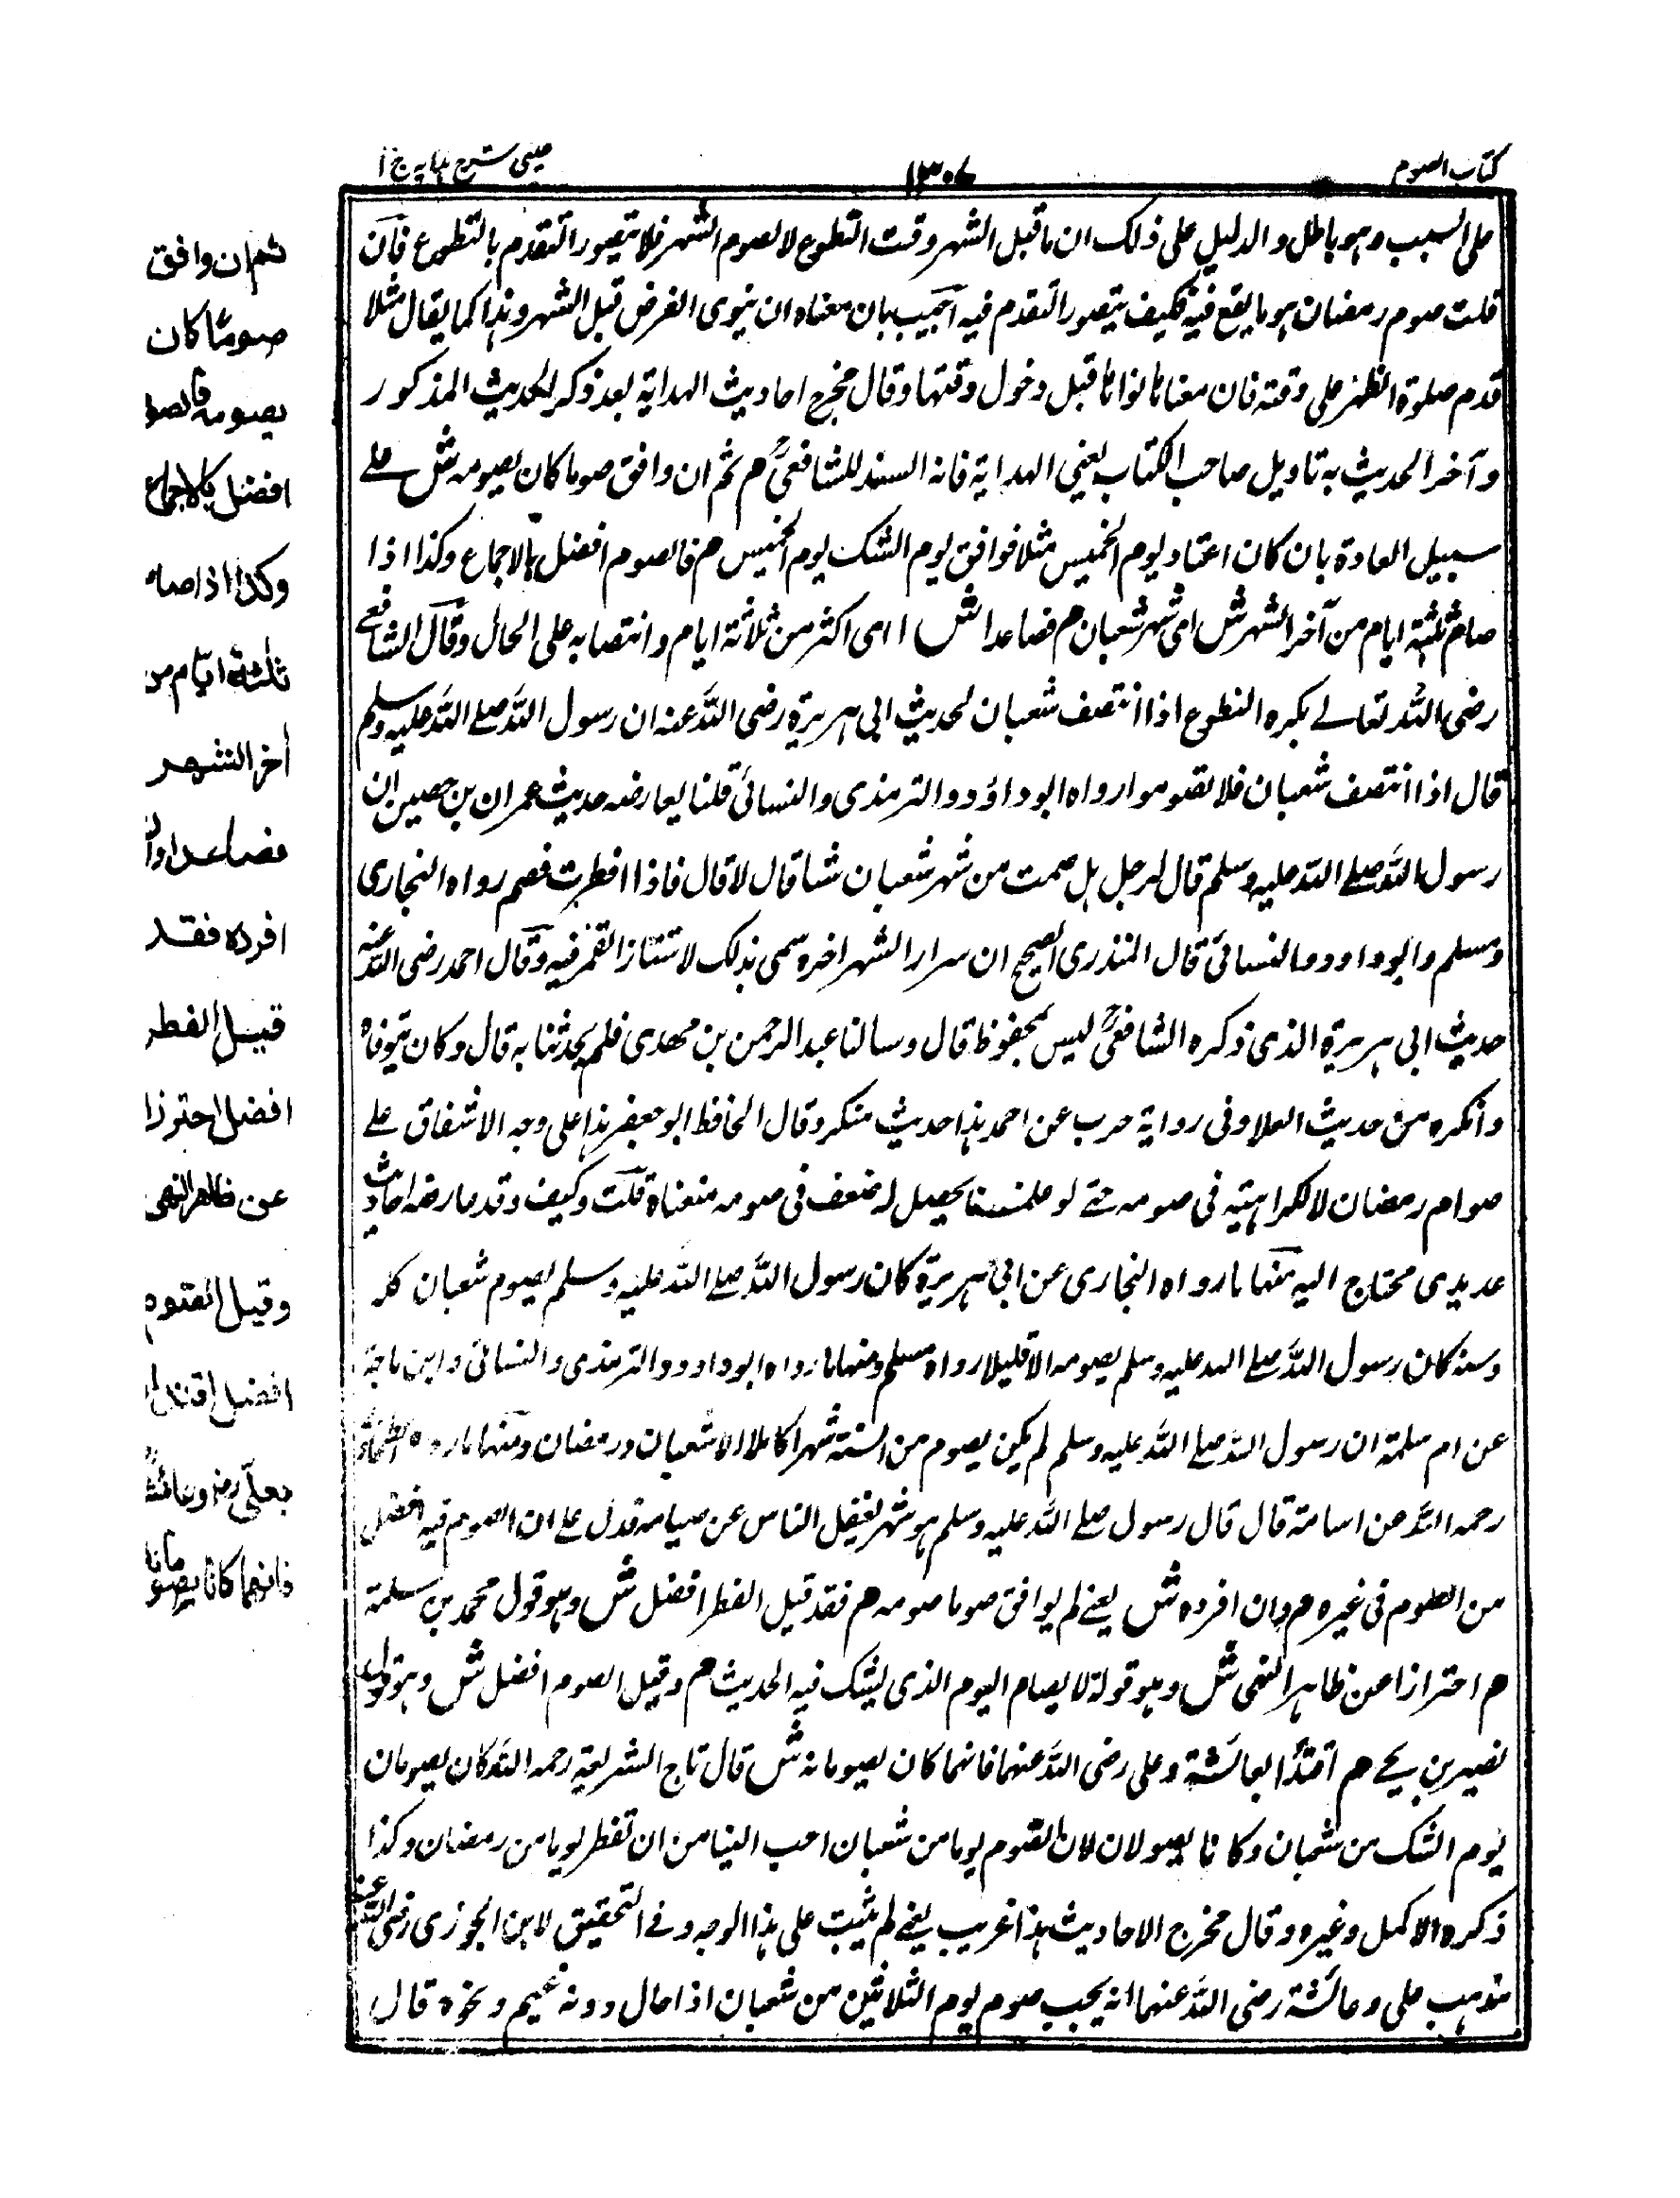 كتاب الصوم
١٣٠٧
عینی شرح ہدایہ ج ١
على السبب وہو باطل والدلیل علی ذلک ان ما قبل الشہر وقت التطوع لا لصوم الشہر فلا یتصور التقدم بالتطوع فان
قلت صوم رمضان ہو ما یقع فیہ فکیف یتصور التقدم فیہ اجیب بان معناہ ان ینوی الفرض قبل الشہر وہذا کما یقال مثلا
قدم صلوۃ الظہر علی وقتہ فان معناہا نواہا قبل دخول وقتہا وقال مخرج احادیث الہدایۃ بعد ذکر الحدیث المذکور
وآخر الحدیث بہ تاویل صاحب الکتاب یعنی الہدایۃ فانہ السند للشافعیؒ م ثم ان وافق صوما کان یصومہ ش علے
سبیل العادۃ بان کان اعتاد یوم الخمیس مثلا فوافق یوم الشک یوم الخمیس م فالصوم افضل بالاجماع وکذا اذا
صام ثلثۃ ایام من آخر الشہر ش ای شہر شعبان م فصاعدا ش ای اکثر من ثلاثۃ ایام وانتصابہ علی الحال وقال الشافعے
رضی اللہ تعالے یکرہ التطوع اذا انتصف شعبان لحدیث ابی ہریرۃ رضی اللہ عنہ ان رسول اللہ صلے اللہ علیہ وسلم
قال اذا انتصف شعبان فلا تصوموا رواہ ابو داؤد والترمذی والنسائی قلنا یعارضہ حدیث عمران بن حصین ان
رسول اللہ صلے اللہ علیہ وسلم قال لرجل ہل صمت من شہر شعبان شیا قال لا قال فاذا افطرت فصم رواہ البخاری
ومسلم وابو داود والنسائی قال المنذری الصحیح ان سرار الشہر اخرہ سمی بذلک لاستتار القمر فیہ وقال احمد رضی اللہ عنہ
حدیث ابی ہریرۃ الذی ذکرہ الشافعیؒ لیس بمحفوظ قال وسالنا عبد الرحمن بن مھدی فلم یحدثنا بہ قال وکان یتوقاہ
وانکرہ من حدیث العلا وفی روایۃ حرب عن احمد ہذا حدیث منکر وقال الحافظ ابو جعفر ہذا علی وجہ الاشفاق علے
صوام رمضان لا لکراہیتہ فی صومہ حتے لو یحصل لہ ضعف فی صومہ منعناہ قلت وکیف وقد عارضہ احادیث
عدیدی محتاج الیہ منہا ما رواہ البخاری عن ابی ہریرۃ کان رسول اللہ صلے اللہ علیہ وسلم یصوم شعبان کلہ
وعنہ کان رسول اللہ صلے اللہ علیہ وسلم یصومہ الا قلیلا رواہ مسلم ومنہا ما رواہ ابو داود والترمذی والنسائی وابن ماجۃ
عن ام سلمۃ ان رسول اللہ صلے اللہ علیہ وسلم لم یکن یصوم من السنۃ شہرا کاملا الا شعبان ورمضان ومنہا ما رواہ الطحاوی
رحمہ اللہ عن اسامۃ قال قال رسول صلے اللہ علیہ وسلم ہو شہر یغفل الناس عن صیامہ فدل علی ان الصوم فیہ افضل
من الصوم فی غیرہ م وان افردہ ش یعنے لم یوافق صوما صومہ م فقد قیل الفطر افضل ش وہو قول محمد بن سلمۃ
م احترازا عن ظاہر النھی ش وہو قولہ لا یصام الیوم الذی یشک فیہ الحدیث م وقیل الصوم افضل ش وہو قول
نصیر بن یحے م اقتداً بعائشۃ وعلی رضی اللہ عنہما فانہما کان یصومانہ ش قال تاج الشریعۃ رحمہ اللہ کان یصومان
یوم الشک من شعبان وکانا یقولان لان نصوم یوما من شعبان احب الینا من ان نفطر یوما من رمضان وکذا
ذکرہ الاکمل وغیرہ وقال مخرج الاحادیث ہذا غریب یعنے لم یثبت علی ہذا الوجہ وفے التحقیق لابن الجوزی رضی اللہ عنہ
مذہب علی وعائشۃ رضی اللہ عنہما انہ یجب صوم یوم الثلاثین من شعبان اذا حال دونہ غیم ونحوہ قال
ثم ان وافق
صومًا کان
یصومہ فالصو
افضل بالاجماع
وکذا اذا صام
ثلثۃ ایّام من
اٰخر الشهر
فصاعدا وان
افردہ فقد
قیل الفطر
افضل احترازا
عن ظاهر النھی
وقیل الصوم
افضل اقتداء
بعلیّ رضہ وعائشۃ
فانهما کانا یصومانہ